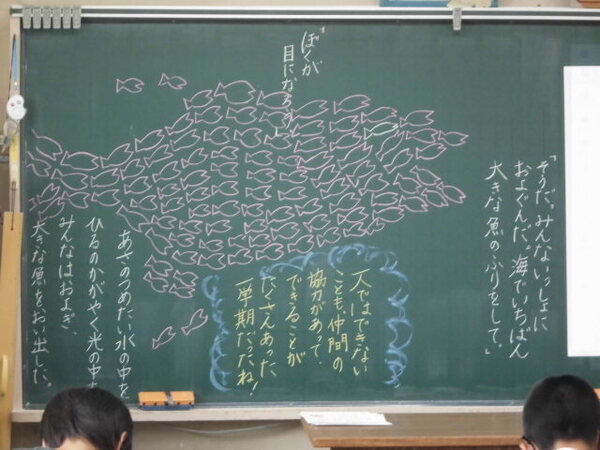 「そうだ。みんないっしょに
およぐんだ。海でいちばん
大きな魚のふりをして。」
「ぼくが
目になろう。」
一人ではできない
ことも、仲間の
協力があって、
できることが
たくさんあった
一学期だったね！
あさのつめたい水の中を、
ひるのかがやく光の中を、
みんなはおよぎ、
大きな魚をおい出した。